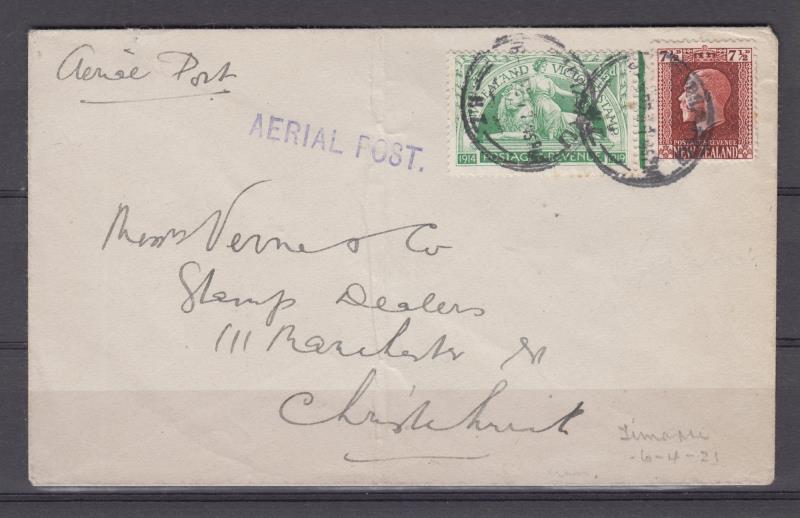 Aerial Post
AERIAL POST.
ZEALAND VICTORY STAMP
1914 POSTAGE & REVENUE 1919
7½ 7½
POSTAGE & REVENUE
NEW ZEALAND
Messrs Verne & Co
Stamp Dealers
111 Manchester St
Christchurch
Timaru
-6-4-21